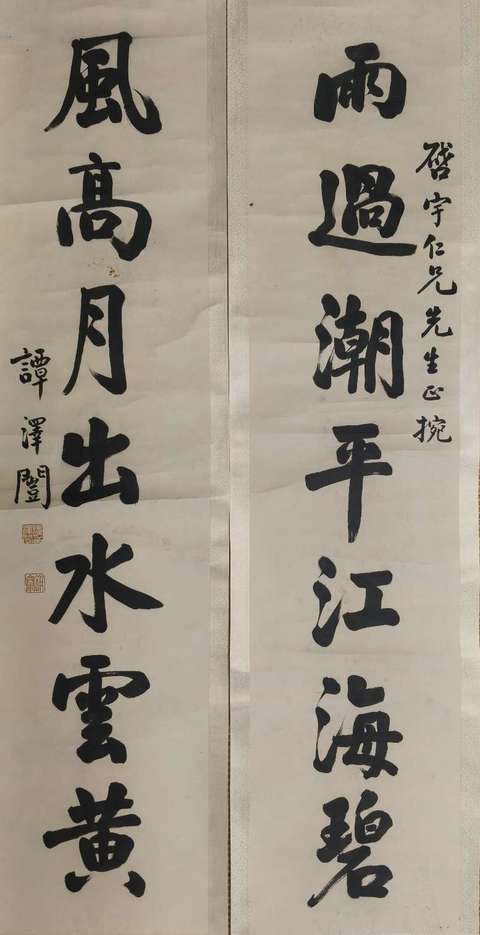 啓宇仁兄先生正捥
雨過潮平江海碧
風高月出水雲黄
譚澤闓